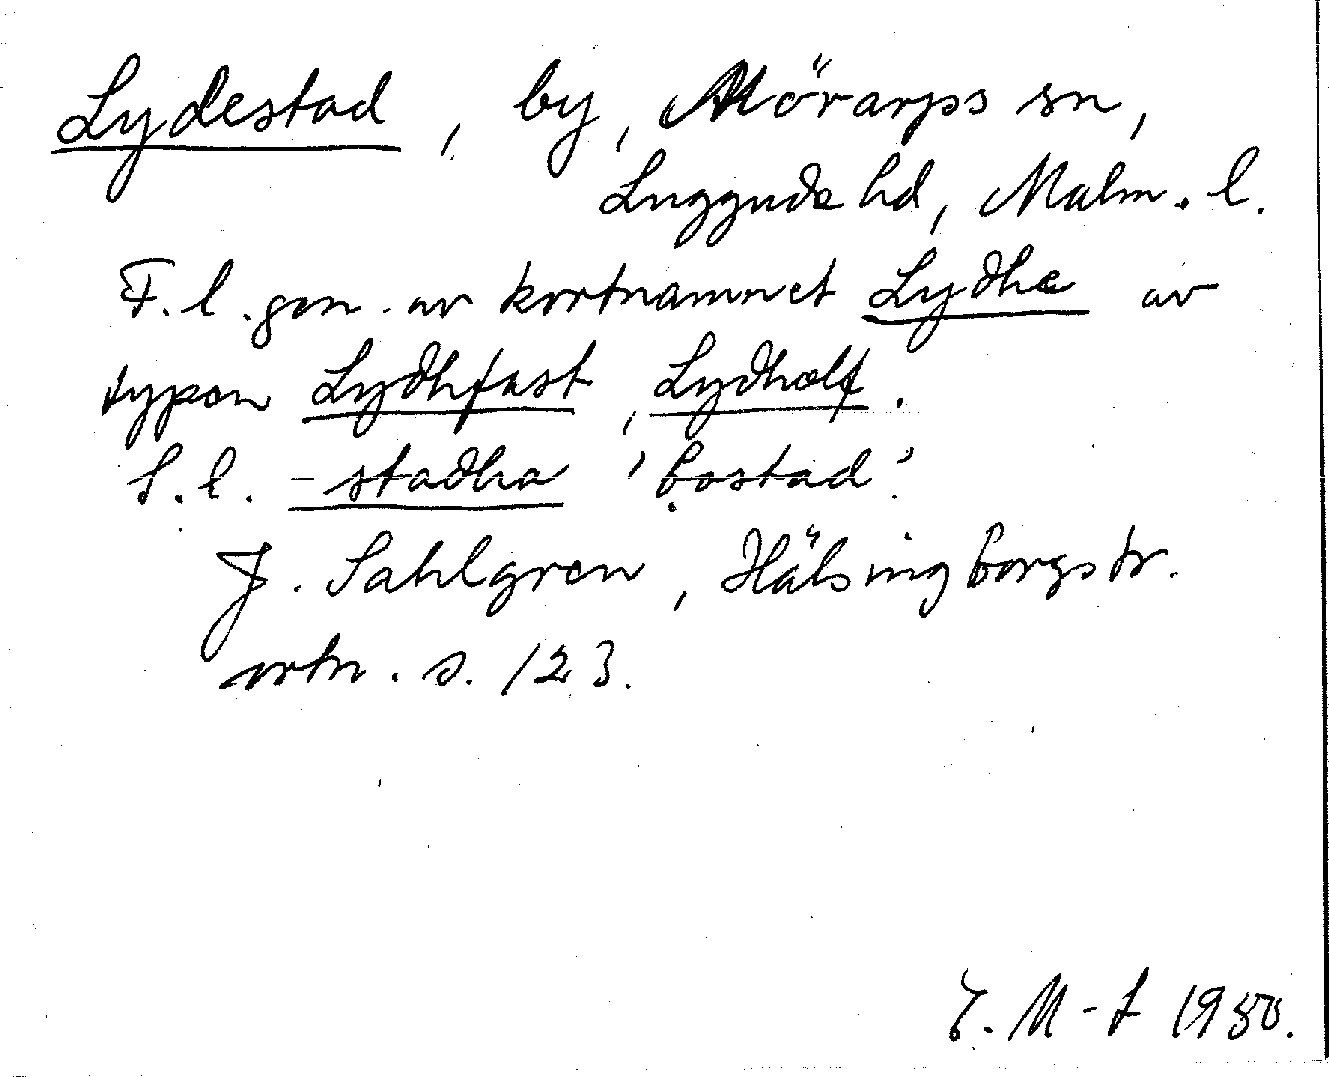 Lydestad, by, Mörarps sn,
Luggude hd, Malm. l.
F. l. gen. av kortnamnet Lydhe av
typen Lydhfast, Lydholf.
S. l. -stadha 'bostad'.
J. Sahlgren, Hälsingborgstr.
ortn. s. 123.
M-L 1950.